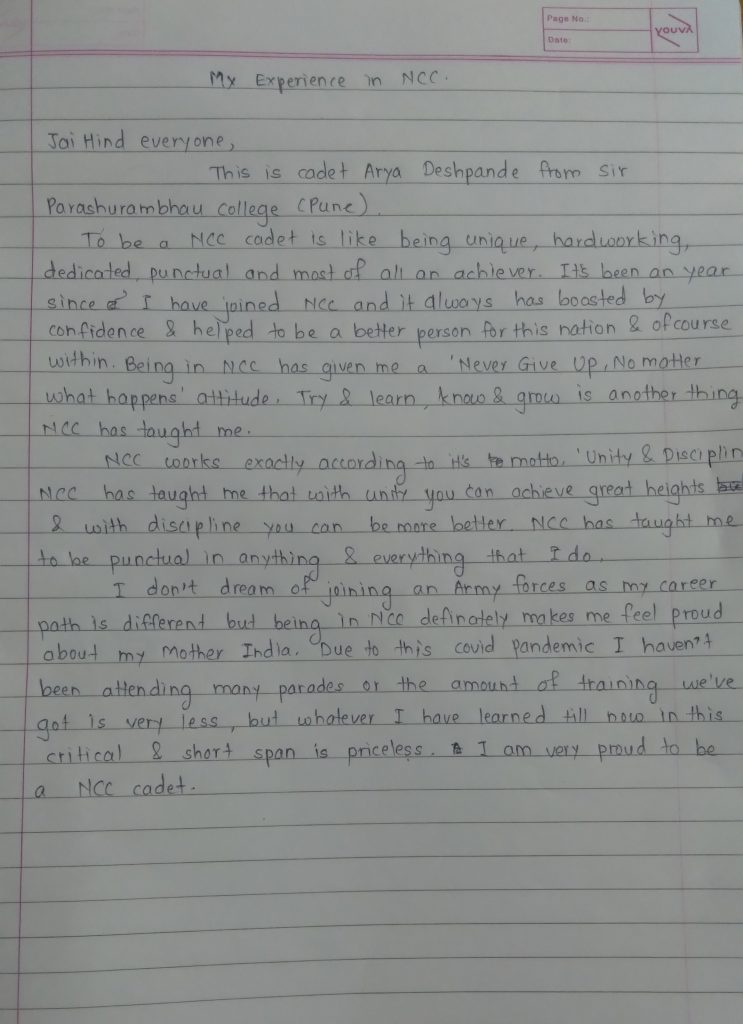 Page No.:
Date:
YOUVA
My Experience in NCC.
Jai Hind everyone,
This is cadet Arya Deshpande from Sir
Parashurambhau College (Pune).
To be a NCC cadet is like being unique, hardworking,
dedicated, punctual and most of all an achiever. It's been an year
since I have joined NCC and it always has boosted by
confidence & helped to be a better person for this nation & ofcourse
within. Being in NCC has given me a 'Never Give Up, No matter
what happens' attitude. Try & learn, know & grow is another thing
NCC has taught me.
NCC works exactly according to it's motto, 'Unity & Disciplin
NCC has taught me that with unity you can achieve great heights
& with discipline you can be more better. NCC has taught me
to be punctual in anything & everything that I do.
I don't dream of joining an Army forces as my career
path is different but being in NCC definately makes me feel proud
about my Mother India. Due to this covid pandemic I haven't
been attending many parades or the amount of training we've
got is very less, but whatever I have learned till now in this
critical & short span is priceless. I am very proud to be
a NCC cadet.